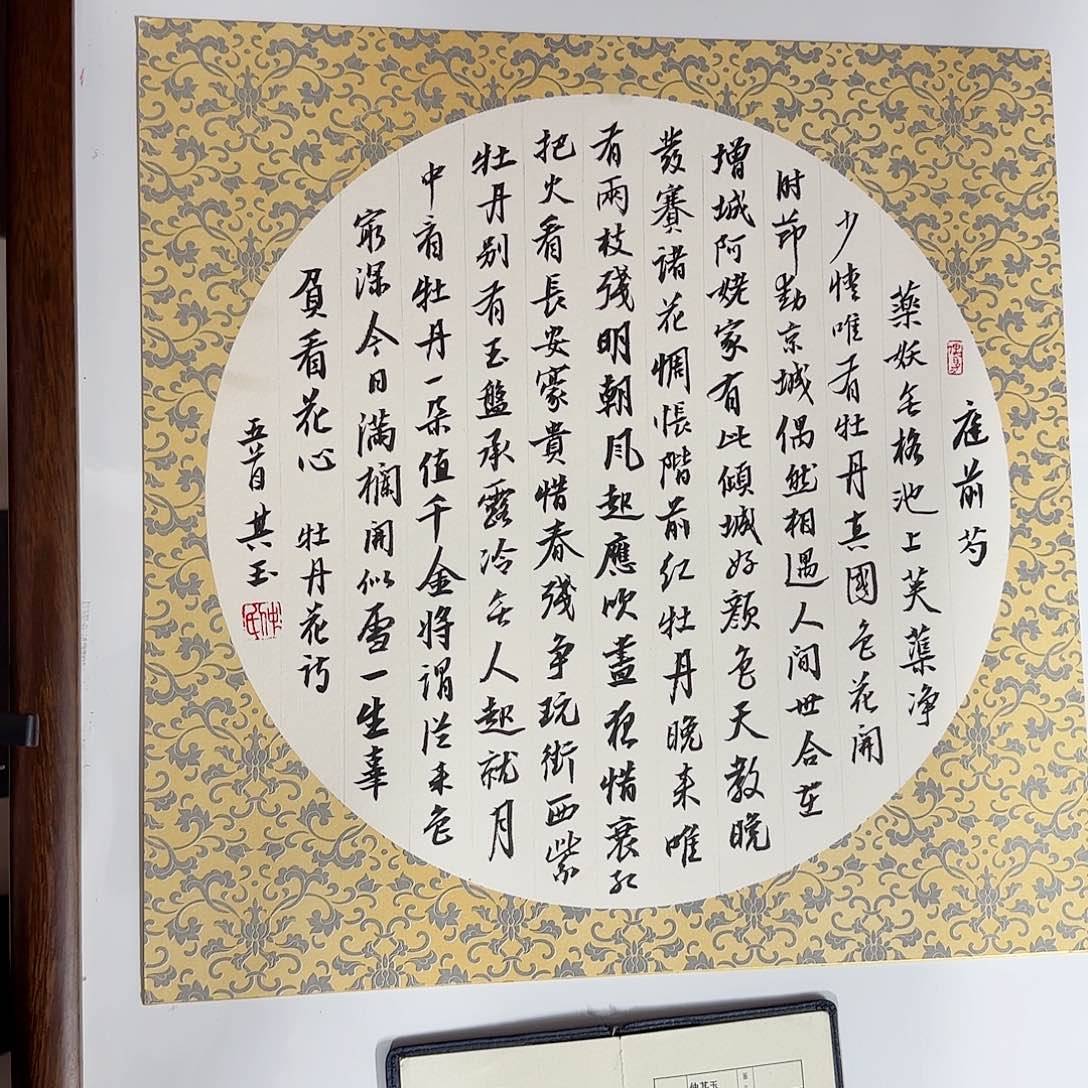 庭前芍
藥妖無格池上芙蕖净
少情唯有牡丹真國色花開
时節動京城偶然相遇人間世合在
增城阿姥家有此傾城好顏色天教晚
發賽諸花惆悵階前紅牡丹晚來唯
有兩枝殘明朝風起應吹盡夜惜衰紅
把火看長安豪貴惜春殘争玩街西紫
牡丹别有玉盤承露冷無人起就月
中看牡丹一朵值千金將謂從來色
窮深今日滿欄開似雪一生辜
負看花心 牡丹花詩
五首 其玉